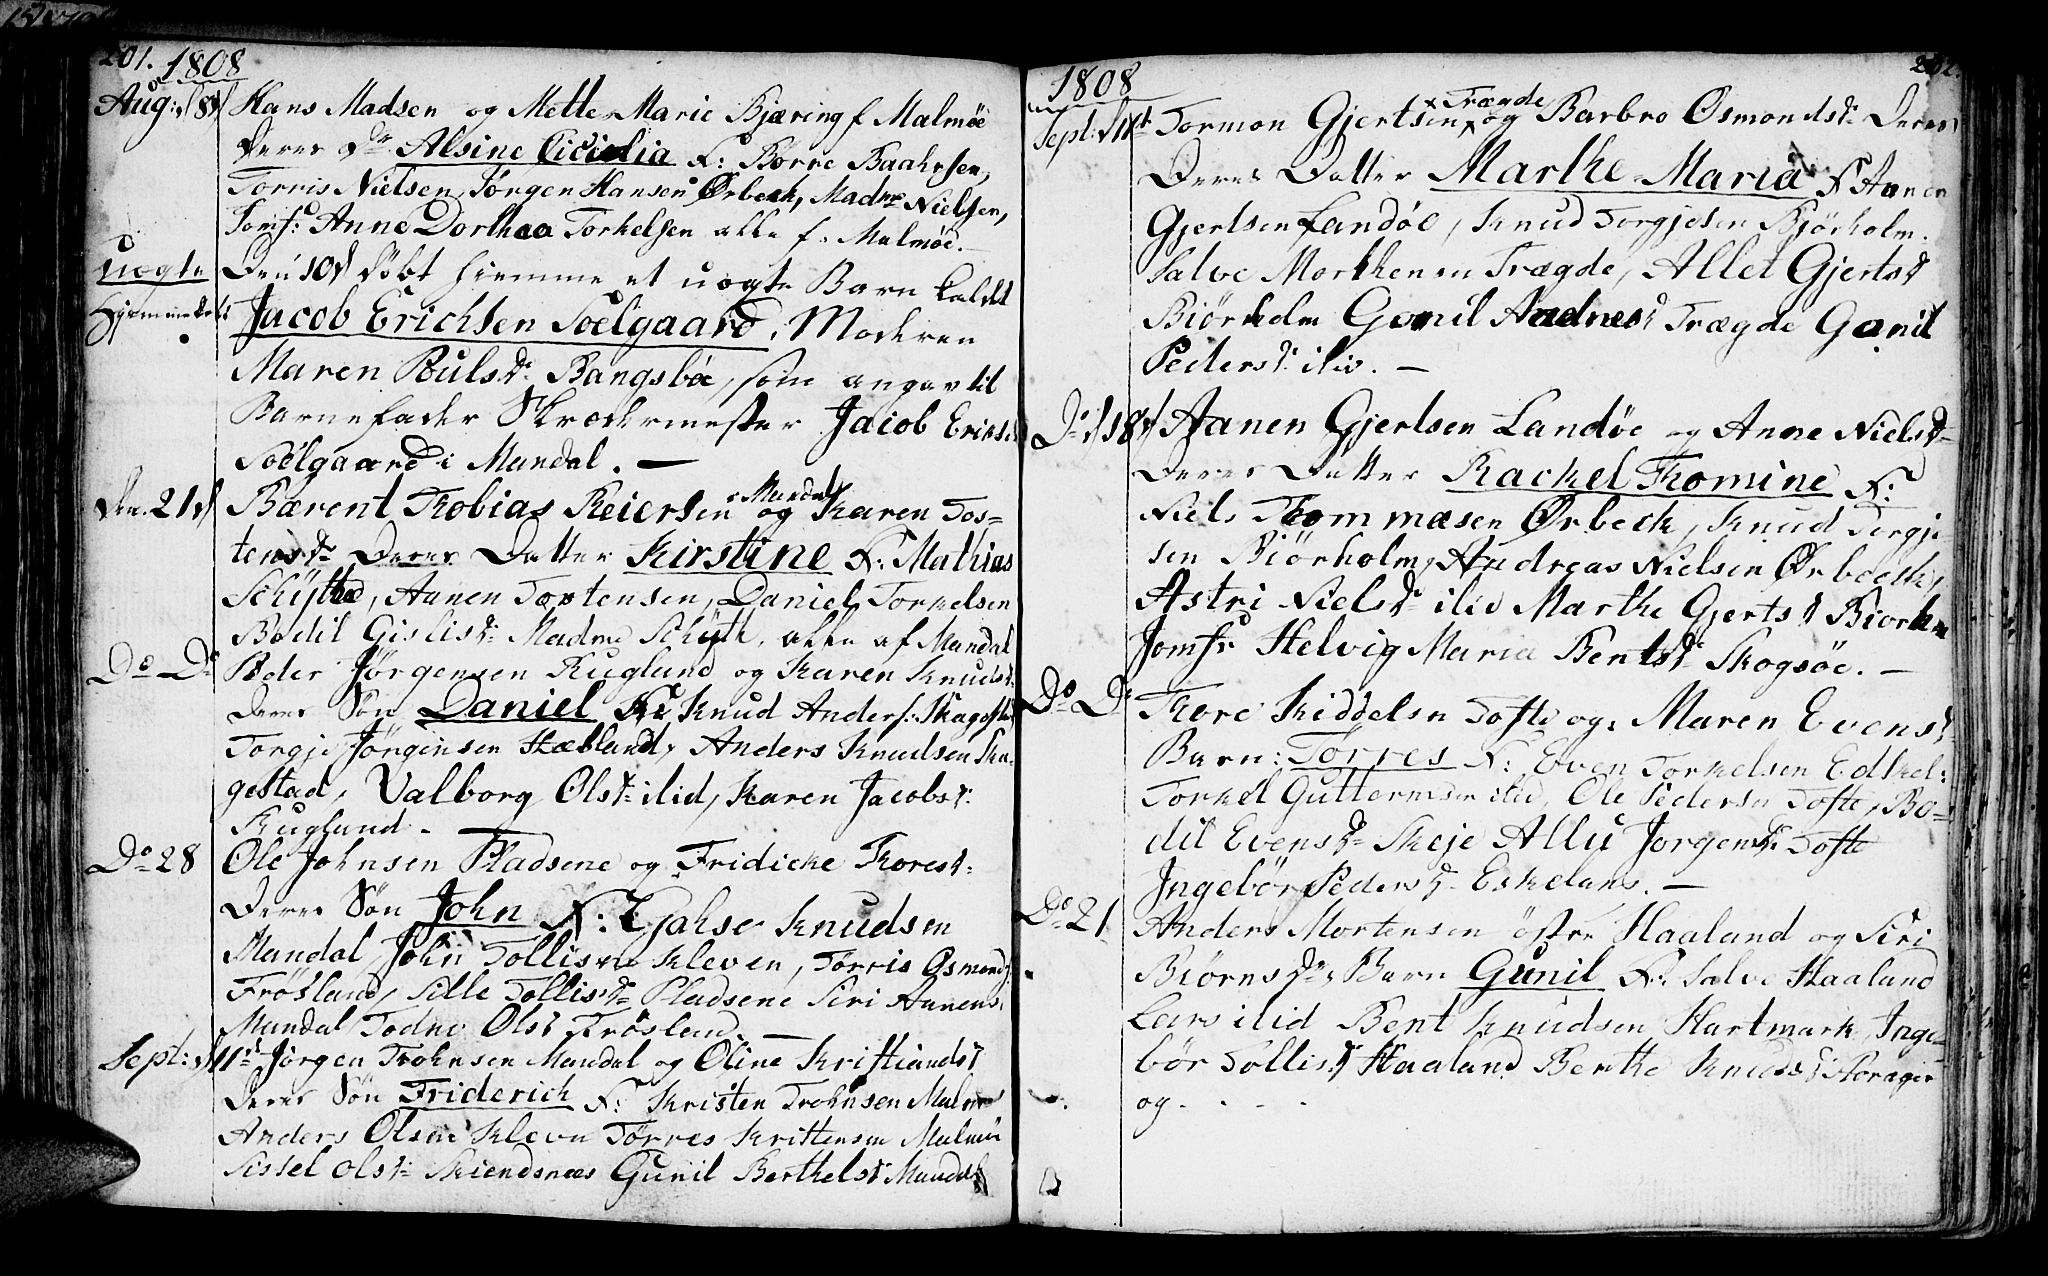 201. 1808
Aug: d 8d Hans Madsen og Mette Marie Bjæring f Malmöe
Deres Dr Alsine Cicielia F: Börre Baahrsen,
Torris Nielsen, Jörgen Hansen Ørbeck, Madme Nielsen,
Jomf: Anne Dorthea Torkelsen alle f. Malmöe. —
uægte Den 10d döbt hiemme et uægte Barn kaldet
Hjemmedøbt Jacob Erichsen Soelgaard. Moderen
Maren Poulsdr Bangsböe, som angav til
Barnefader Skredermester Jacob Eriks:
Soelgaard i Mandal. —
Den. 21d Bærent Tobias Reiersen i Mandal og Karen Tos=
tensdr Deres Datter Kirstine F: Mathias
Schÿtte, Aanen Tostensen, Daniel Torkelsen
Bodil Gislisdr Madme Schÿtte, alle af Mandal
Do Do Peder Jörgensen Kuglund og Karen Knudsdr
Deres Sön Daniel F: Knud Anders: Skagestad
Torgje Jörgensen Hæsland, Anders Knudsen Ska-
gestad, Valborg Olsdr ilid, Karen Jacobsdr
Kuglund. —
Do 28 Ole Johnsen Pladsene og Fridicke Thoresdr
Deres Sön John F: Knudsen
Mandal, John Tollisen Kleven, Törris Osmonds:
Frösland, Sille Tollisdr Pladsene Siri Aanens:
Mandal Todne Olsd Frösland. —
Sept: d 11d Jörgen Trohnsen Mandal og Oline Kristiansdr
Deres Sön Friderich F: Kristen Trohnsen Malmöe
Anders Olsen Kleven Törres Kristensen Malmöe
Sissel Olsdr Skiendsnæs Gunil Berthelsdr Mandal
1808 202.
Sept: d 11d Tormon Gjertsen Trægde og Barbro Osmondsdr Deres
Deres Datter Marthe Maria F Aanen
Gjertsen Landöe, Knud Torgjesen Bjørholm.
Salve Morthensen Trægde, Allet Gjertsd
Biörholm Gonil Aadnesd Trægde Gonil
Pedersdr ilid. —
Do d 18d Aanen Gjertsen Landöe og Anne Nielsd
Deres Datter Rackel Tomine F:
Niels Tommæsen Ørbeck, Knud Torgje
sen Biörholm, Andreas Nielsen Ørbeck,
Astri Nielsdr ilid Marthe Gjertsd Biorhm
Jomfr Helvig Maria Bentsdr Skogsöe. —
Do Do Tore Kiddelsn Tofte og Maren Evensd
Barn: Törres F: Even Torkelsen Edkel:
Torkel Guttormsen ilid, Ole Pedersn Tofte, Bo=
dil Evensdr Skeje Allu Jorgensd Tofte
Ingebör Pedersdr Eskelans. —
Do 21 Anders Mortensen östre Haaland og Siri
Biörnsdr Barn Gunil F: Salve Haaland
Lars ilid Bent Knudsen Hartmark, Inge-
bör Tollisd Haaland Berthe Knudsd
og - - - -